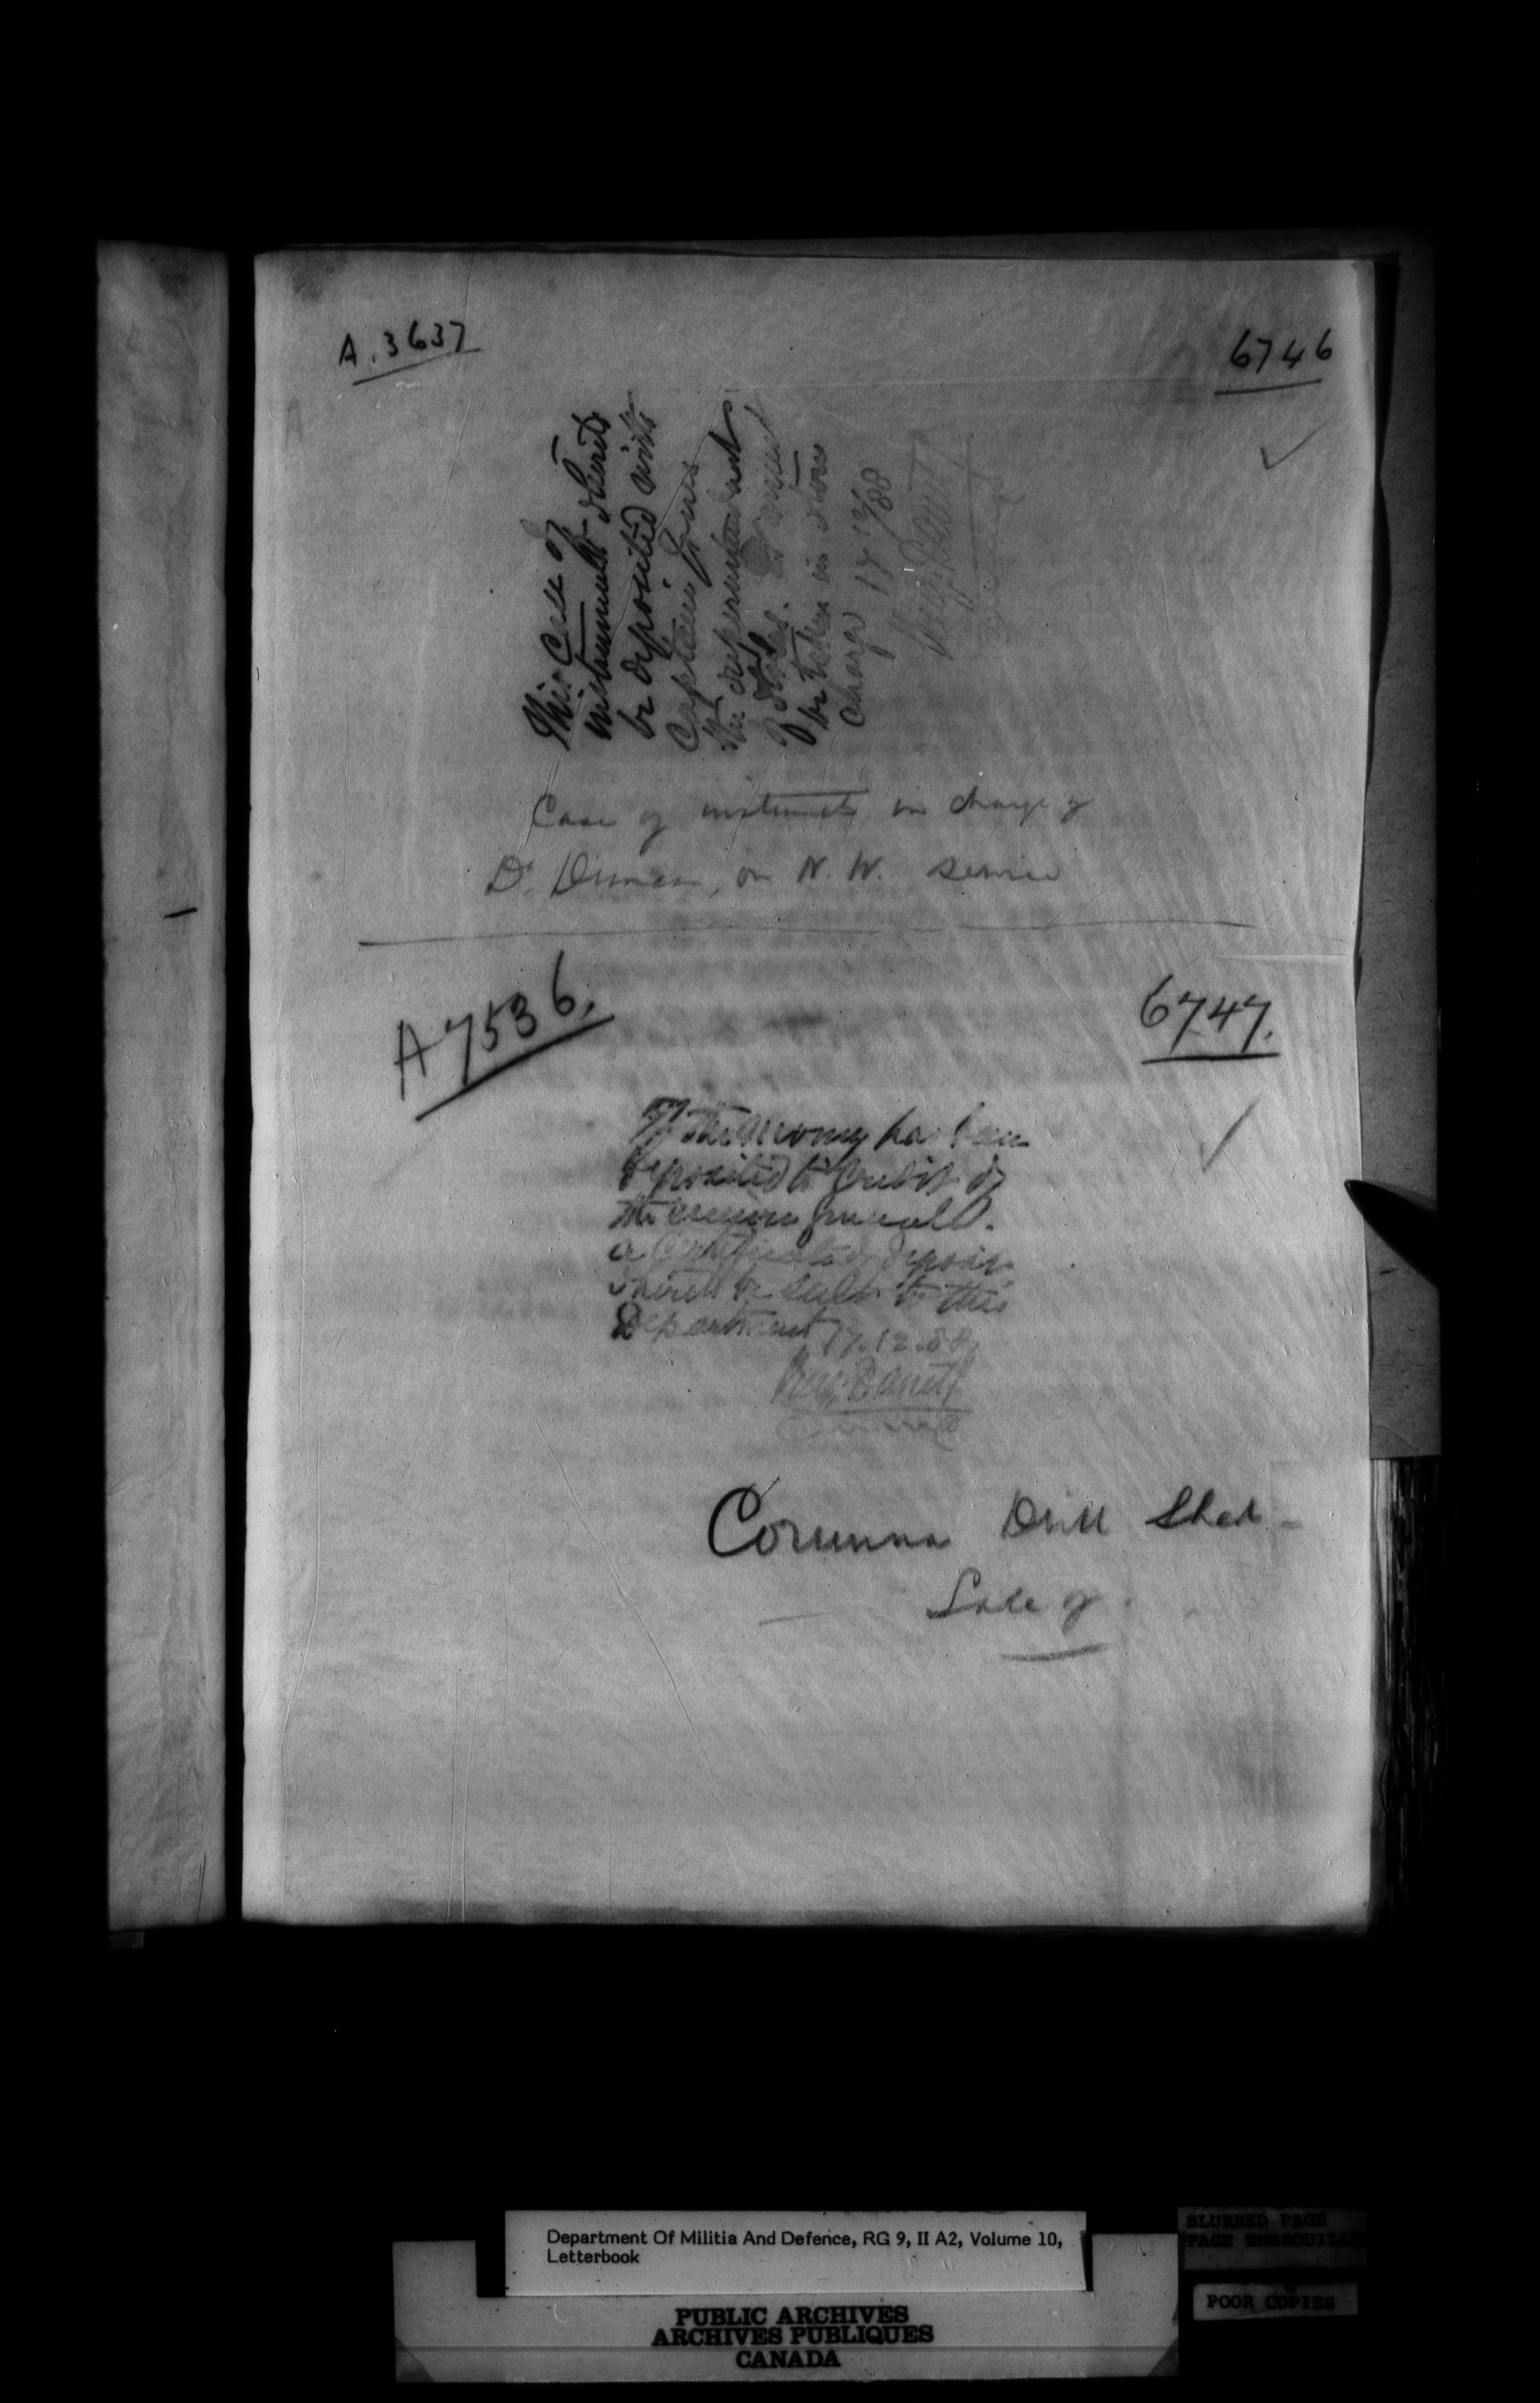 A. 3637
6746
This Case of
instruments should
be deposited with
Captain Jones
the superintendent
of Stores. It must
be taken in store
charge 17/12/88
Case of instruments in charge of
Dr. Duncan, on N. W. Service
A 7536.
6747.
If the money has been
deposited to Credit of
the Receiver General.
a Certificate of deposit
should be sent to this
Department 17.12.88
Corunna Drill Shed
Sale of
Department Of Militia And Defence, RG 9, II A2, Volume 10,
Letterbook
BLURRED PAGE
PAGE EMBROUILL
POOR COPIES
PUBLIC ARCHIVES
ARCHIVES PUBLIQUES
CANADA